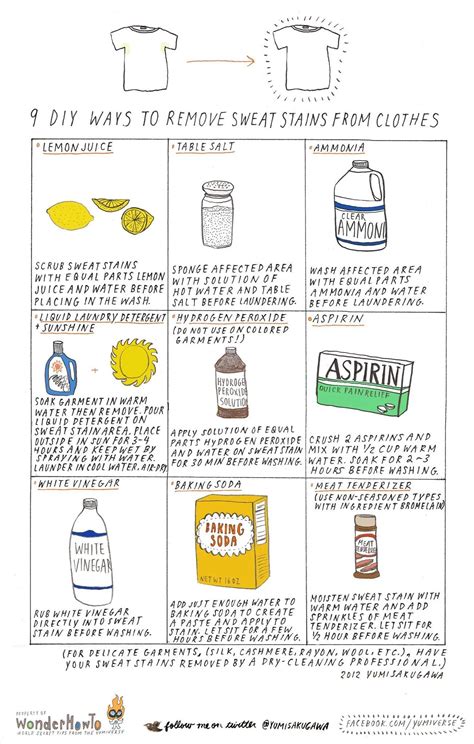 9 DIY WAYS TO REMOVE SWEAT STAINS FROM CLOTHES
LEMON JUICE
SCRUB SWEAT STAINS
WITH EQUAL PARTS LEMON
JUICE AND WATER BEFORE
PLACING IN THE WASH.
TABLE SALT
SPONGE AFFECTED AREA
WITH SOLUTION OF
HOT WATER AND TABLE
SALT BEFORE LAUNDERING.
AMMONIA
CLEAR
AMMONI
WASH AFFECTED AREA
WITH EQUAL PARTS
AMMONIA AND WATER
BEFORE LAUNDERING.
LIQUID LAUNDRY DETERGENT
+ SUNSHINE
SOAK GARMENT IN WARM
WATER THEN REMOVE. POUR
LIQUID DETERGENT ON
SWEAT STAIN AREA. PLACE
OUTSIDE IN SUN FOR 3-4
HOURS AND KEEP WET BY
SPRAYING WITH WATER.
LAUNDER IN COOL WATER. AIR-DRY.
HYDROGEN PEROXIDE
(DO NOT USE ON COLORED
GARMENTS!)
HYDROGEN
PEROXIDE
SOLUTION
APPLY SOLUTION OF EQUAL
PARTS HYDROGEN PEROXIDE
AND WATER ON SWEAT STAIN
FOR 30 MIN BEFORE WASHING.
ASPIRIN
ASPIRIN
QUICK PAIN RELIEF
CRUSH 2 ASPIRINS AND
MIX WITH 1/2 CUP WARM
WATER. SOAK FOR 2~3
HOURS BEFORE WASHING.
WHITE VINEGAR
WHITE
VINEGAR
RUB WHITE VINEGAR
DIRECTLY INTO SWEAT
STAIN BEFORE WASHING.
BAKING SODA
BAKING
SODA
NET WT 16 OZ
ADD JUST ENOUGH WATER TO
BAKING SODA TO CREATE
A PASTE AND APPLY TO
STAIN. LET SIT FOR A FEW
HOURS BEFORE WASHING.
MEAT TENDERIZER
(USE NON-SEASONED TYPES
WITH INGREDIENT BROMELAIN)
MEAT
TENDERIZER
MOISTEN SWEAT STAIN WITH
WARM WATER AND ADD
SPRINKLES OF MEAT
TENDERIZER. LET SIT FOR
1/2 HOUR BEFORE WASHING.
(FOR DELICATE GARMENTS, (SILK, CASHMERE, RAYON, WOOL, ETC.), HAVE
YOUR SWEAT STAINS REMOVED BY A DRY-CLEANING PROFESSIONAL.)
2012 YUMI SAKUGAWA
PROPERTY OF
WonderHowTo
WORLD SECRET TIPS FROM THE YUMIVERSE
follow me on twitter @YUMISAKUGAWA
FACEBOOK.COM/YUMIVERSE